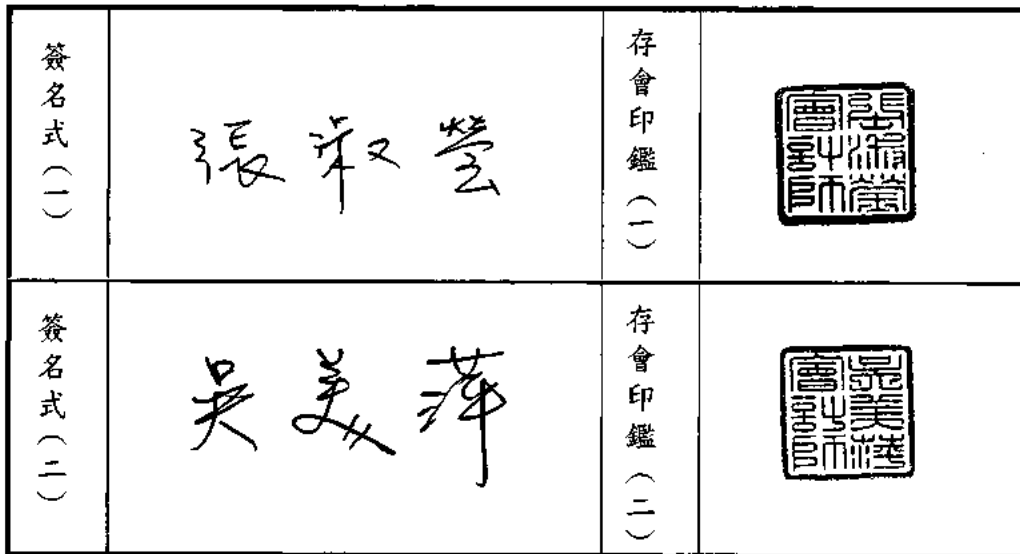 簽名式(一)
張淑瑩
存會印鑑(一)
張淑瑩會計師
簽名式(二)
吳美萍
存會印鑑(二)
吳美萍會計師